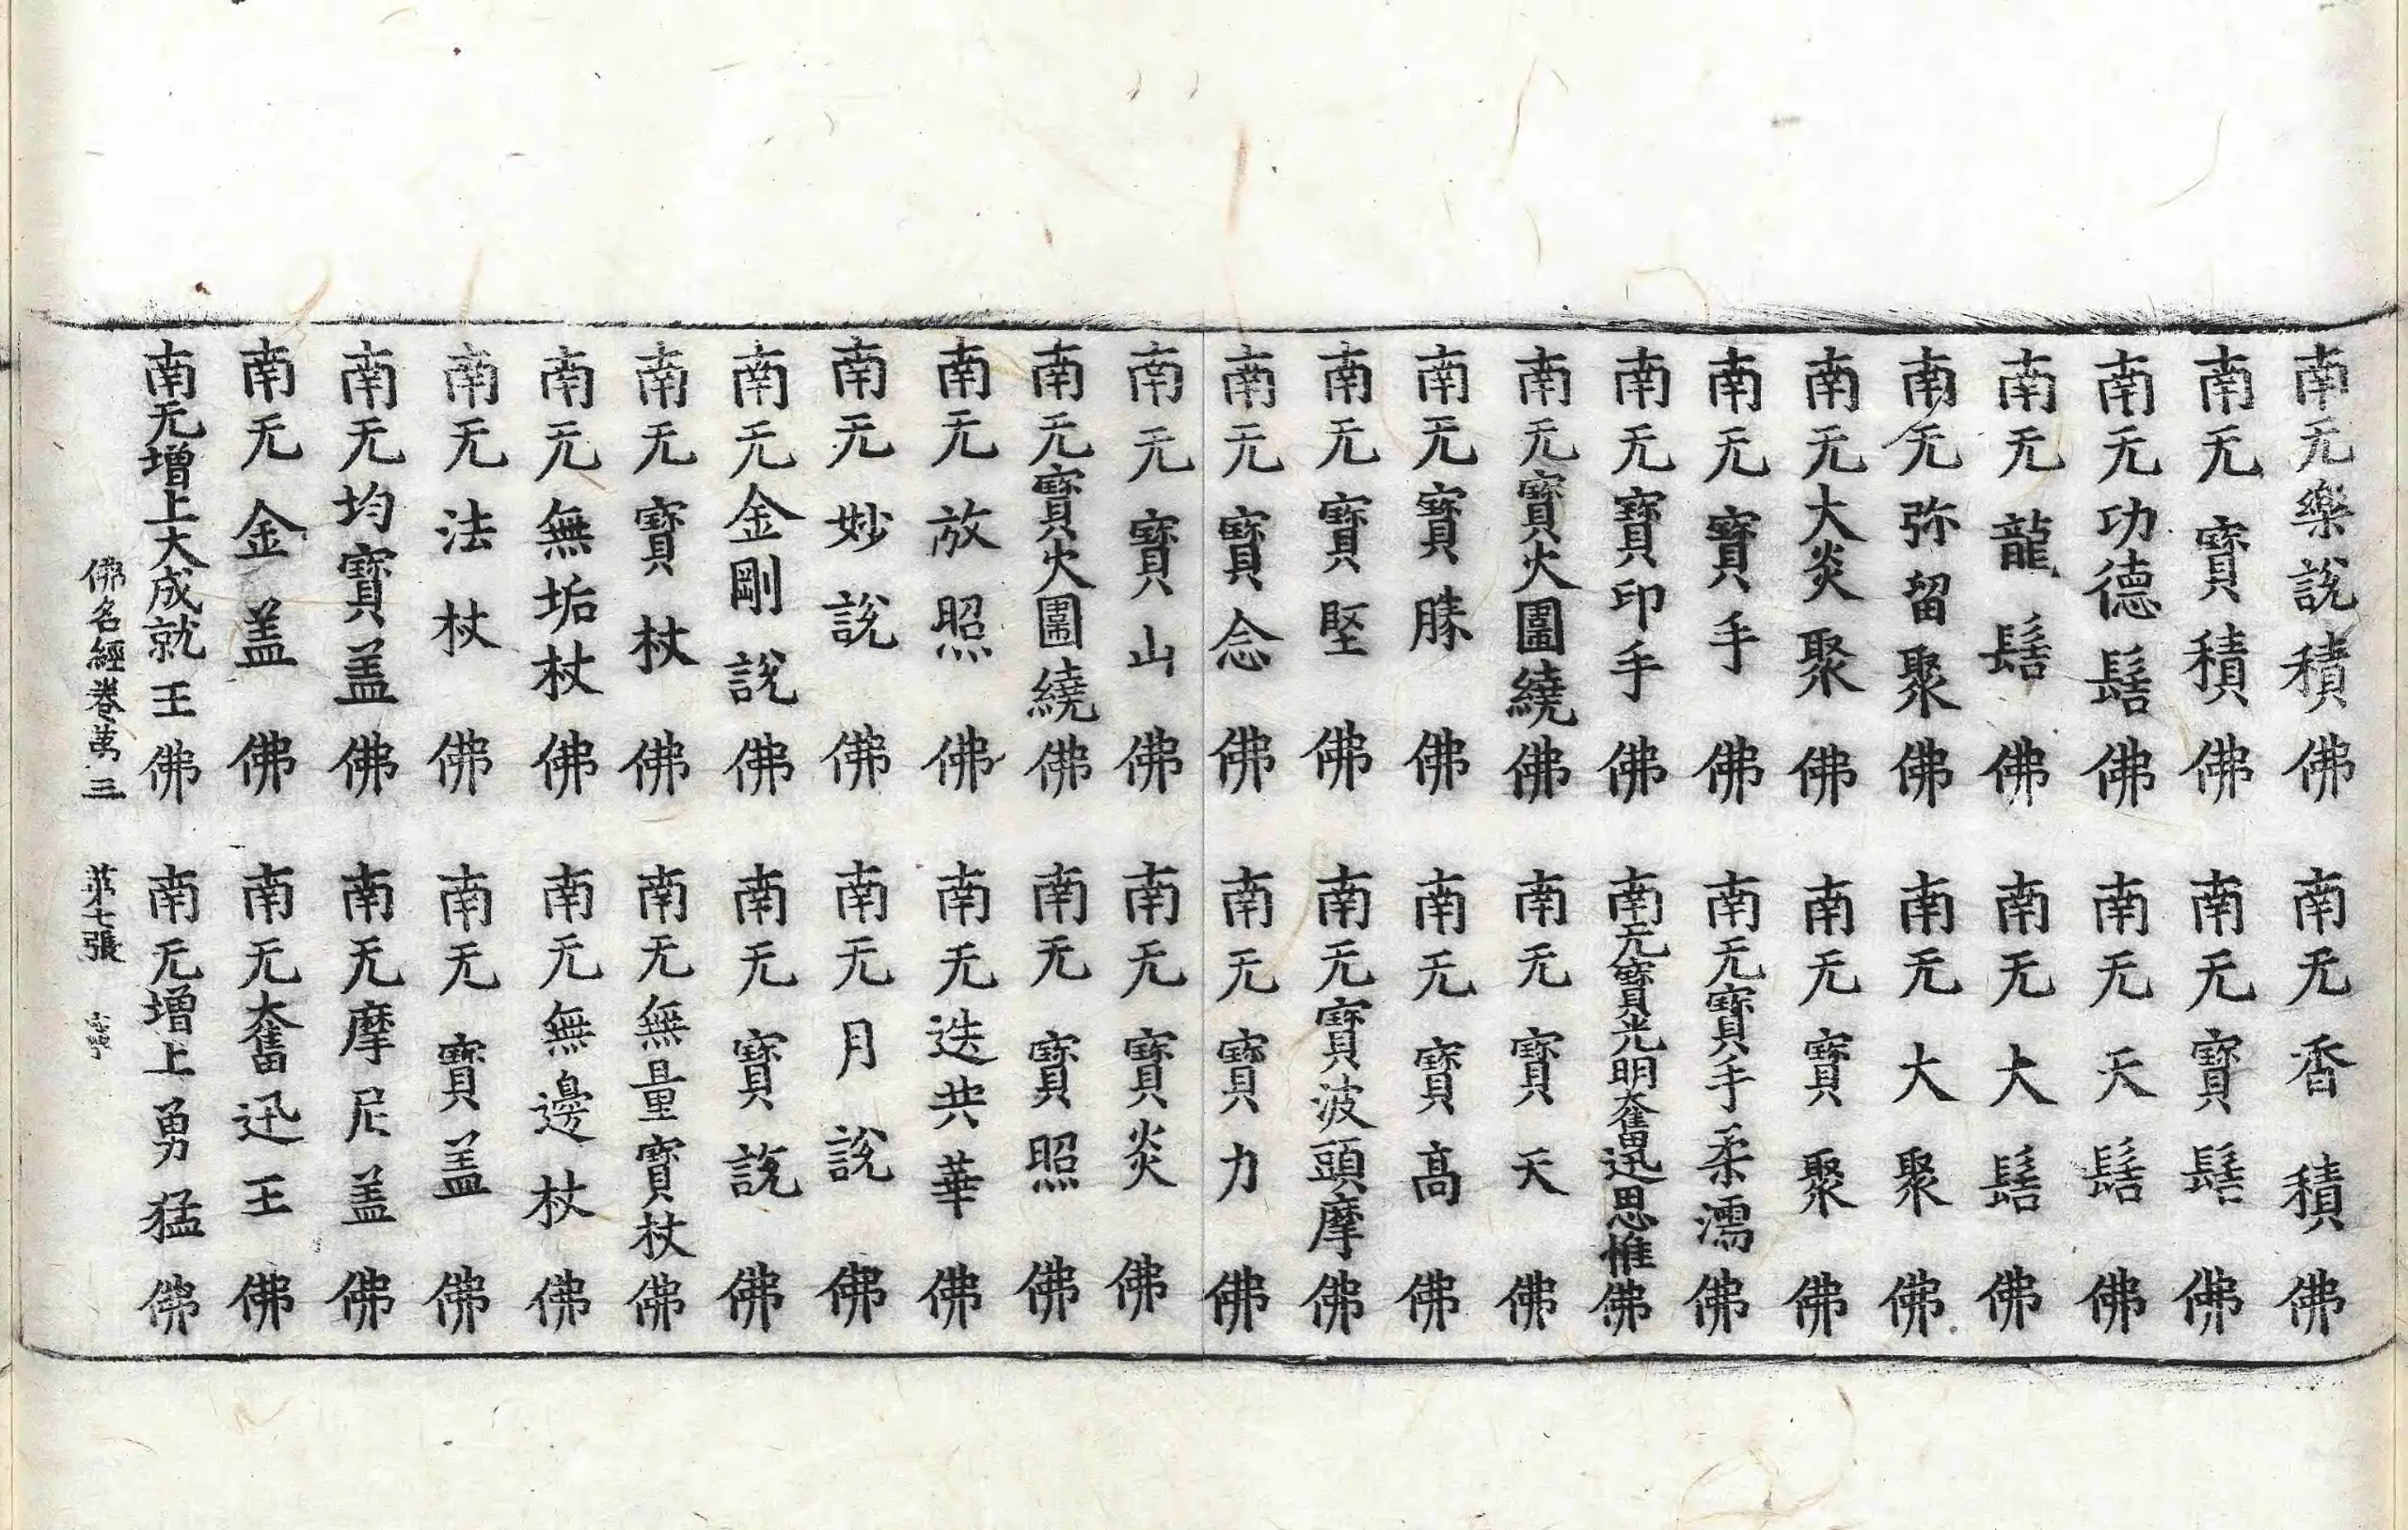 南无樂說積佛　南无香積佛
南无寶積佛　南无寶髻佛
南无功德髻佛　南无天髻佛
南无龍髻佛　南无大髻佛
南无弥留聚佛　南无大聚佛
南无大炎聚佛　南无寶聚佛
南无寶手佛　南无寶手柔濡佛
南无寶印手佛　南无寶光明奮迅思惟佛
南无寶火圍繞佛　南无寶天佛
南无寶勝佛　南无寶高佛
南无寶堅佛　南无寶波頭摩佛
南无寶念佛　南无寶力佛
南无寶山佛　南无寶炎佛
南无寶火圍繞佛　南无寶照佛
南无放照佛　南无迭共華佛
南无妙說佛　南无月說佛
南无金剛說佛　南无寶說佛
南无寶杖佛　南无無量寶杖佛
南无無垢杖佛　南无無邊杖佛
南无法杖佛　南无寶盖佛
南无均寶盖佛　南无摩尼盖佛
南无金盖佛　南无奮迅王佛
南无增上大成就王佛　南无增上勇猛佛
佛名經卷苐三　苐七張